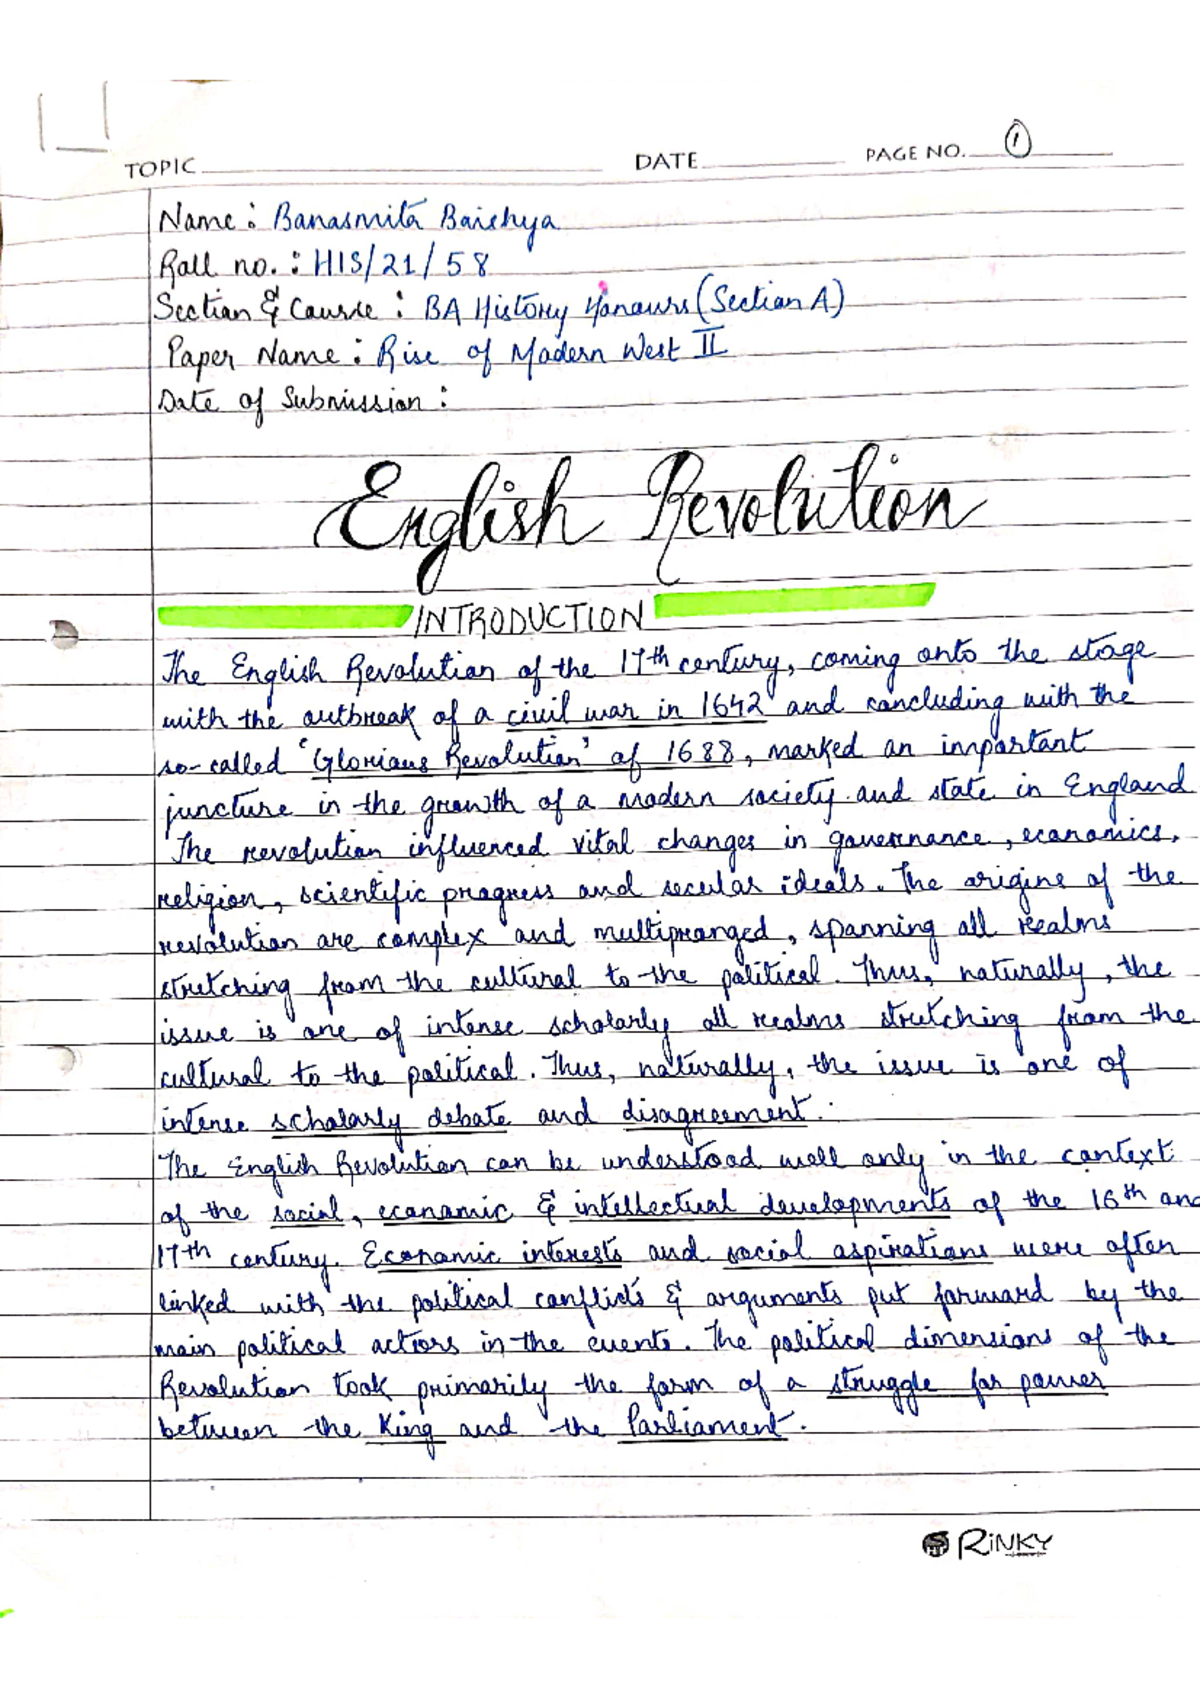 TOPIC DATE PAGE NO. 1
Name: Banasmita Baishya
Roll no.: HIS/21/58
Section & Course: BA History Honours (Section A)
Paper Name: Rise of Modern West II
Date of Submission:
English Revolution
INTRODUCTION
The English Revolution of the 17th century, coming onto the stage
with the outbreak of a civil war in 1642 and concluding with the
so-called 'Glorious Revolution' of 1688, marked an important
juncture in the growth of a modern society and state in England
The revolution influenced vital changes in governance, economics,
religion, scientific progress and secular ideals. The origins of the
revolution are complex and multipronged, spanning all realms
stretching from the cultural to the political. Thus, naturally, the
issue is one of intense scholarly all realms stretching from the
cultural to the political. Thus, naturally, the issue is one of
intense scholarly debate and disagreement.
The English Revolution can be understood well only in the context
of the social, economic & intellectual developments of the 16th and
17th century. Economic interests and social aspirations were often
linked with the political conflicts & arguments put forward by the
main political actors in the events. The political dimensions of the
Revolution took primarily the form of a struggle for power
between the King and the Parliament.
RiNKY